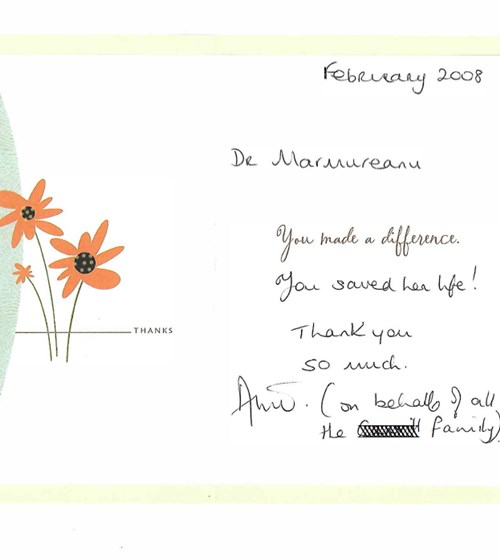 February 2008
Dr Marmureanu
You made a difference.
You saved her life!
Thank you
so much.
THANKS
(on behalf of all
the family)